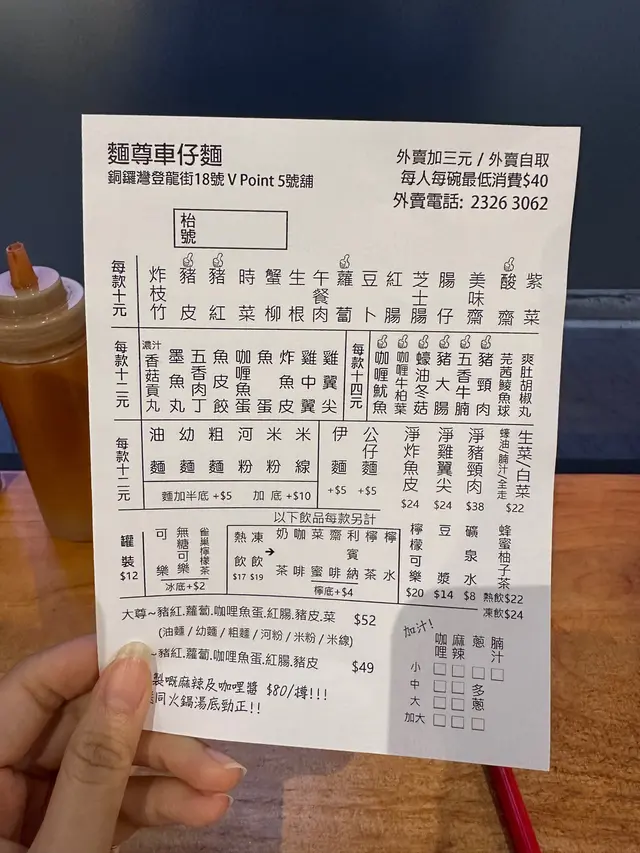 麵尊車仔麵
銅鑼灣登龍街18號 V Point 5號舖
外賣加三元 / 外賣自取
每人每碗最低消費$40
外賣電話: 2326 3062
枱號
每款十元
炸枝竹
豬皮
豬紅
時菜
蟹柳
生根
午餐肉
蘿蔔
豆卜
紅腸
芝士腸
腸仔
美味齋
酸齋
紫菜
每款十二元
濃汁香菇貢丸
墨魚丸
五香肉丁
魚皮餃
咖喱魚蛋
魚蛋
炸魚皮
雞中翼
雞翼尖
每款十四元
咖喱魷魚
咖喱牛柏葉
蠔油冬菇
豬大腸
五香牛腩
豬頸肉
芫茜鯪魚球
爽肚胡椒丸
每款十二元
油麵
幼麵
粗麵
河粉
米粉
米線
麵加半底 +$5
加底 +$10
伊麵 +$5
公仔麵 +$5
淨炸魚皮 $24
淨雞翼尖 $24
淨豬頸肉 $38
生菜/白菜 蠔油/腩汁/全走 $22
以下飲品每款另計
罐裝 $12
可樂
無糖可樂
雀巢檸檬茶
冰底+$2
熱飲 $17
凍飲 $19
奶茶
咖啡
菜蜜
齋啡
利賓納
檸茶
檸水
檸底+$4
檸檬可樂 $20
豆漿 $14
礦泉水 $8
蜂蜜柚子茶
熱飲$22
凍飲$24
大尊~豬紅.蘿蔔.咖喱魚蛋.紅腸.豬皮.菜 $52
(油麵 / 幼麵 / 粗麵 / 河粉 / 米粉 / 米線)
~豬紅.蘿蔔.咖喱魚蛋.紅腸.豬皮 $49
製嘅麻辣及咖喱醬 $80/樽!!!
同火鍋湯底勁正!!
加汁!
咖喱
麻辣
蔥
腩汁
小
中
大
加大
多蔥